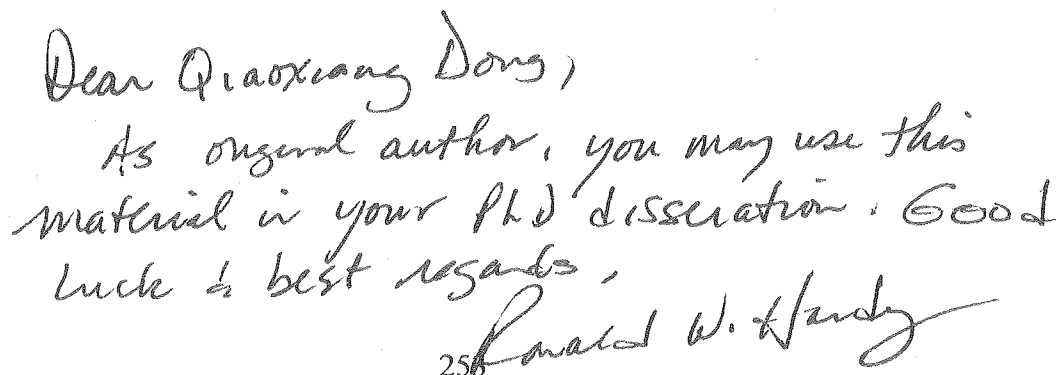 Dear Qiaoxiang Dong,
As original author, you may use this
material in your PhD disseration. Good
luck & best regards,
Ronald W. Hardy
256